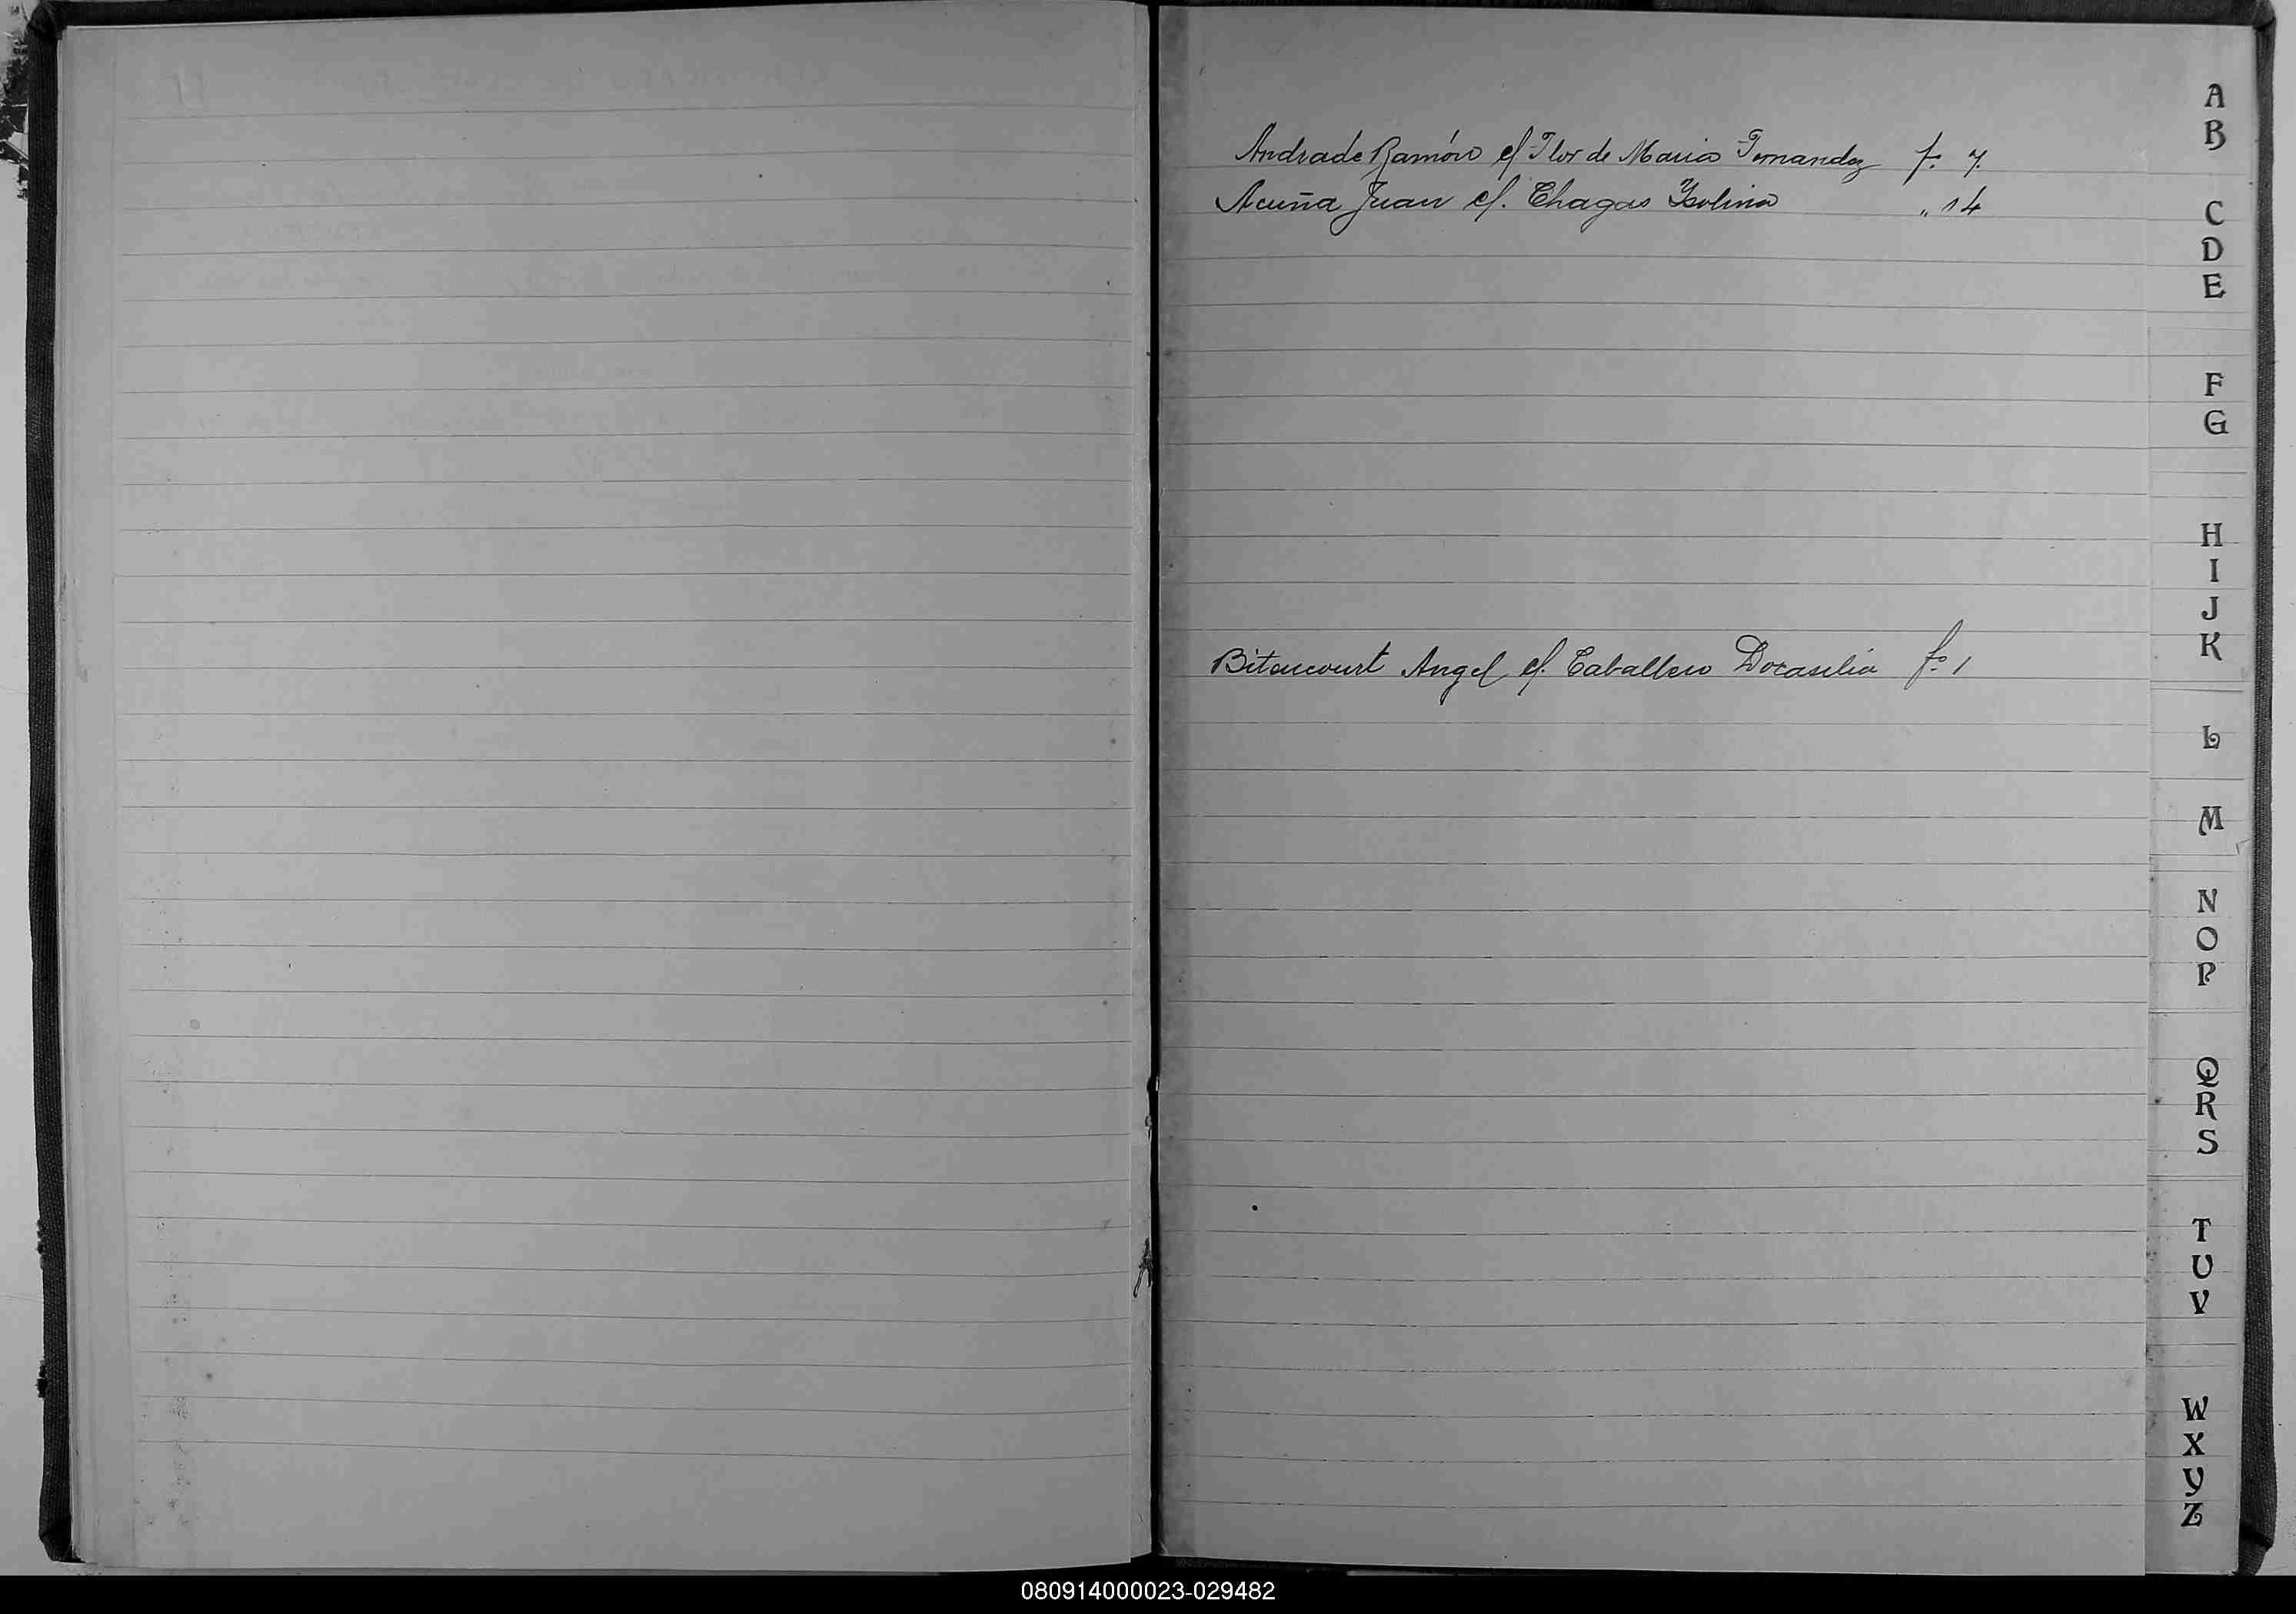 Andrade Ramón c/ Flor de Maria Fernandez fº 7.
Acuña Juan c/. Chagas Ysolina " 14
Bitencourt Angel c/. Caballero Docasilia fº 1
A
B
C
D
E
F
G
H
I
J
K
L
M
N
O
P
Q
R
S
T
U
V
W
X
Y
Z
080914000023-029482